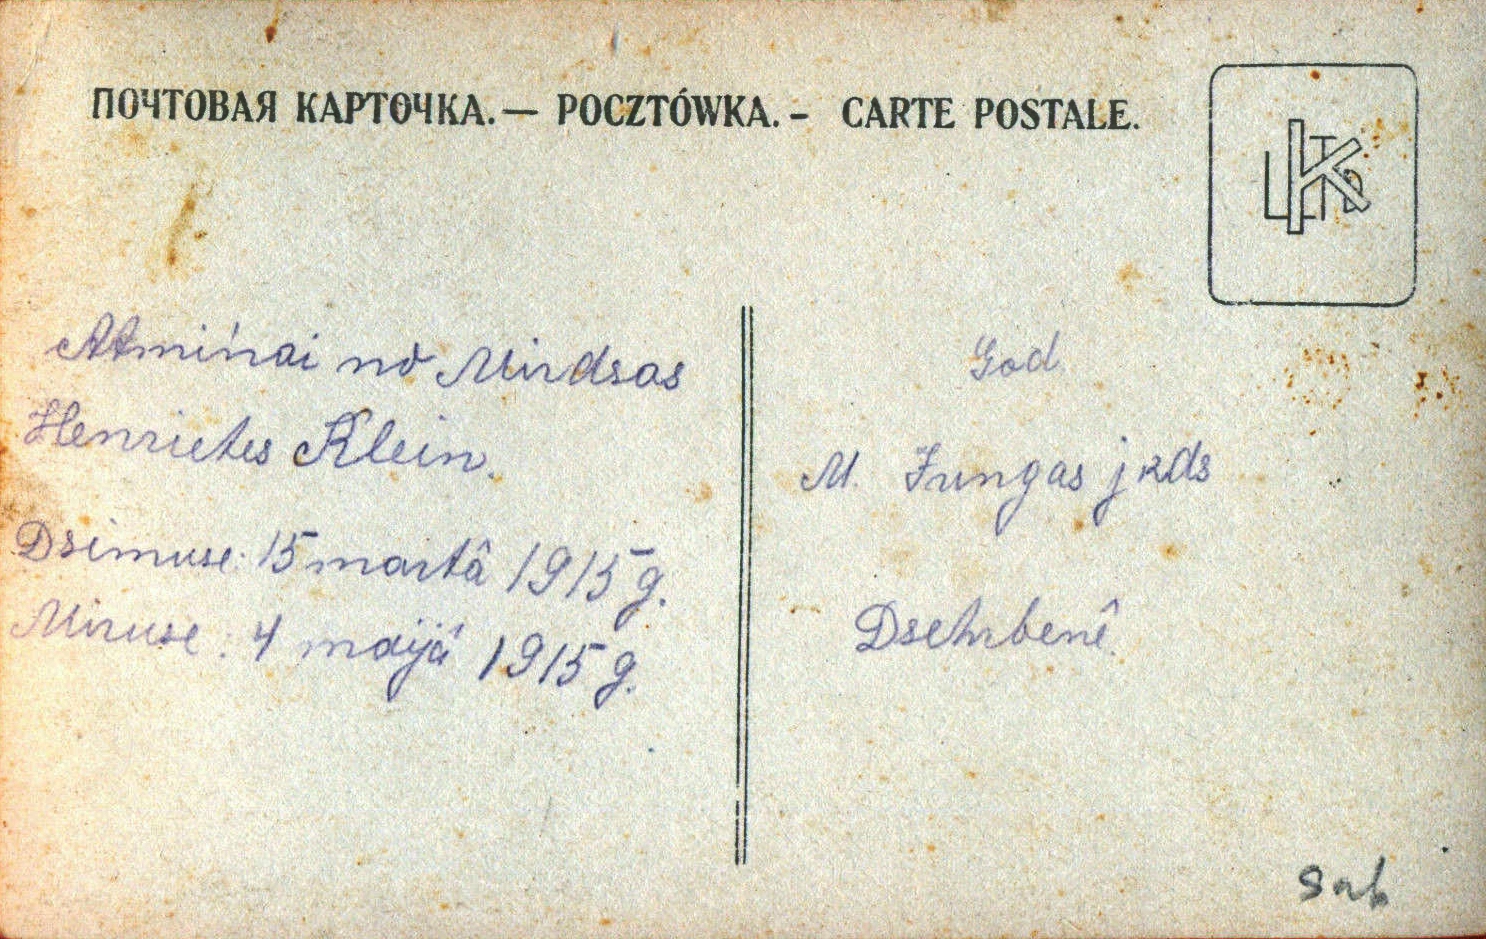 ПОЧТОВАЯ КАРТОЧКА. — POCZTÓWKA. - CARTE POSTALE.
Atmiņai no Mirdsas
Henrietes Klein.
Dsimuse: 15 martâ 1915 g.
Miruse: 4 maijâ 1915 g.
God
M. Jungas jkds
Dsehrbenê.